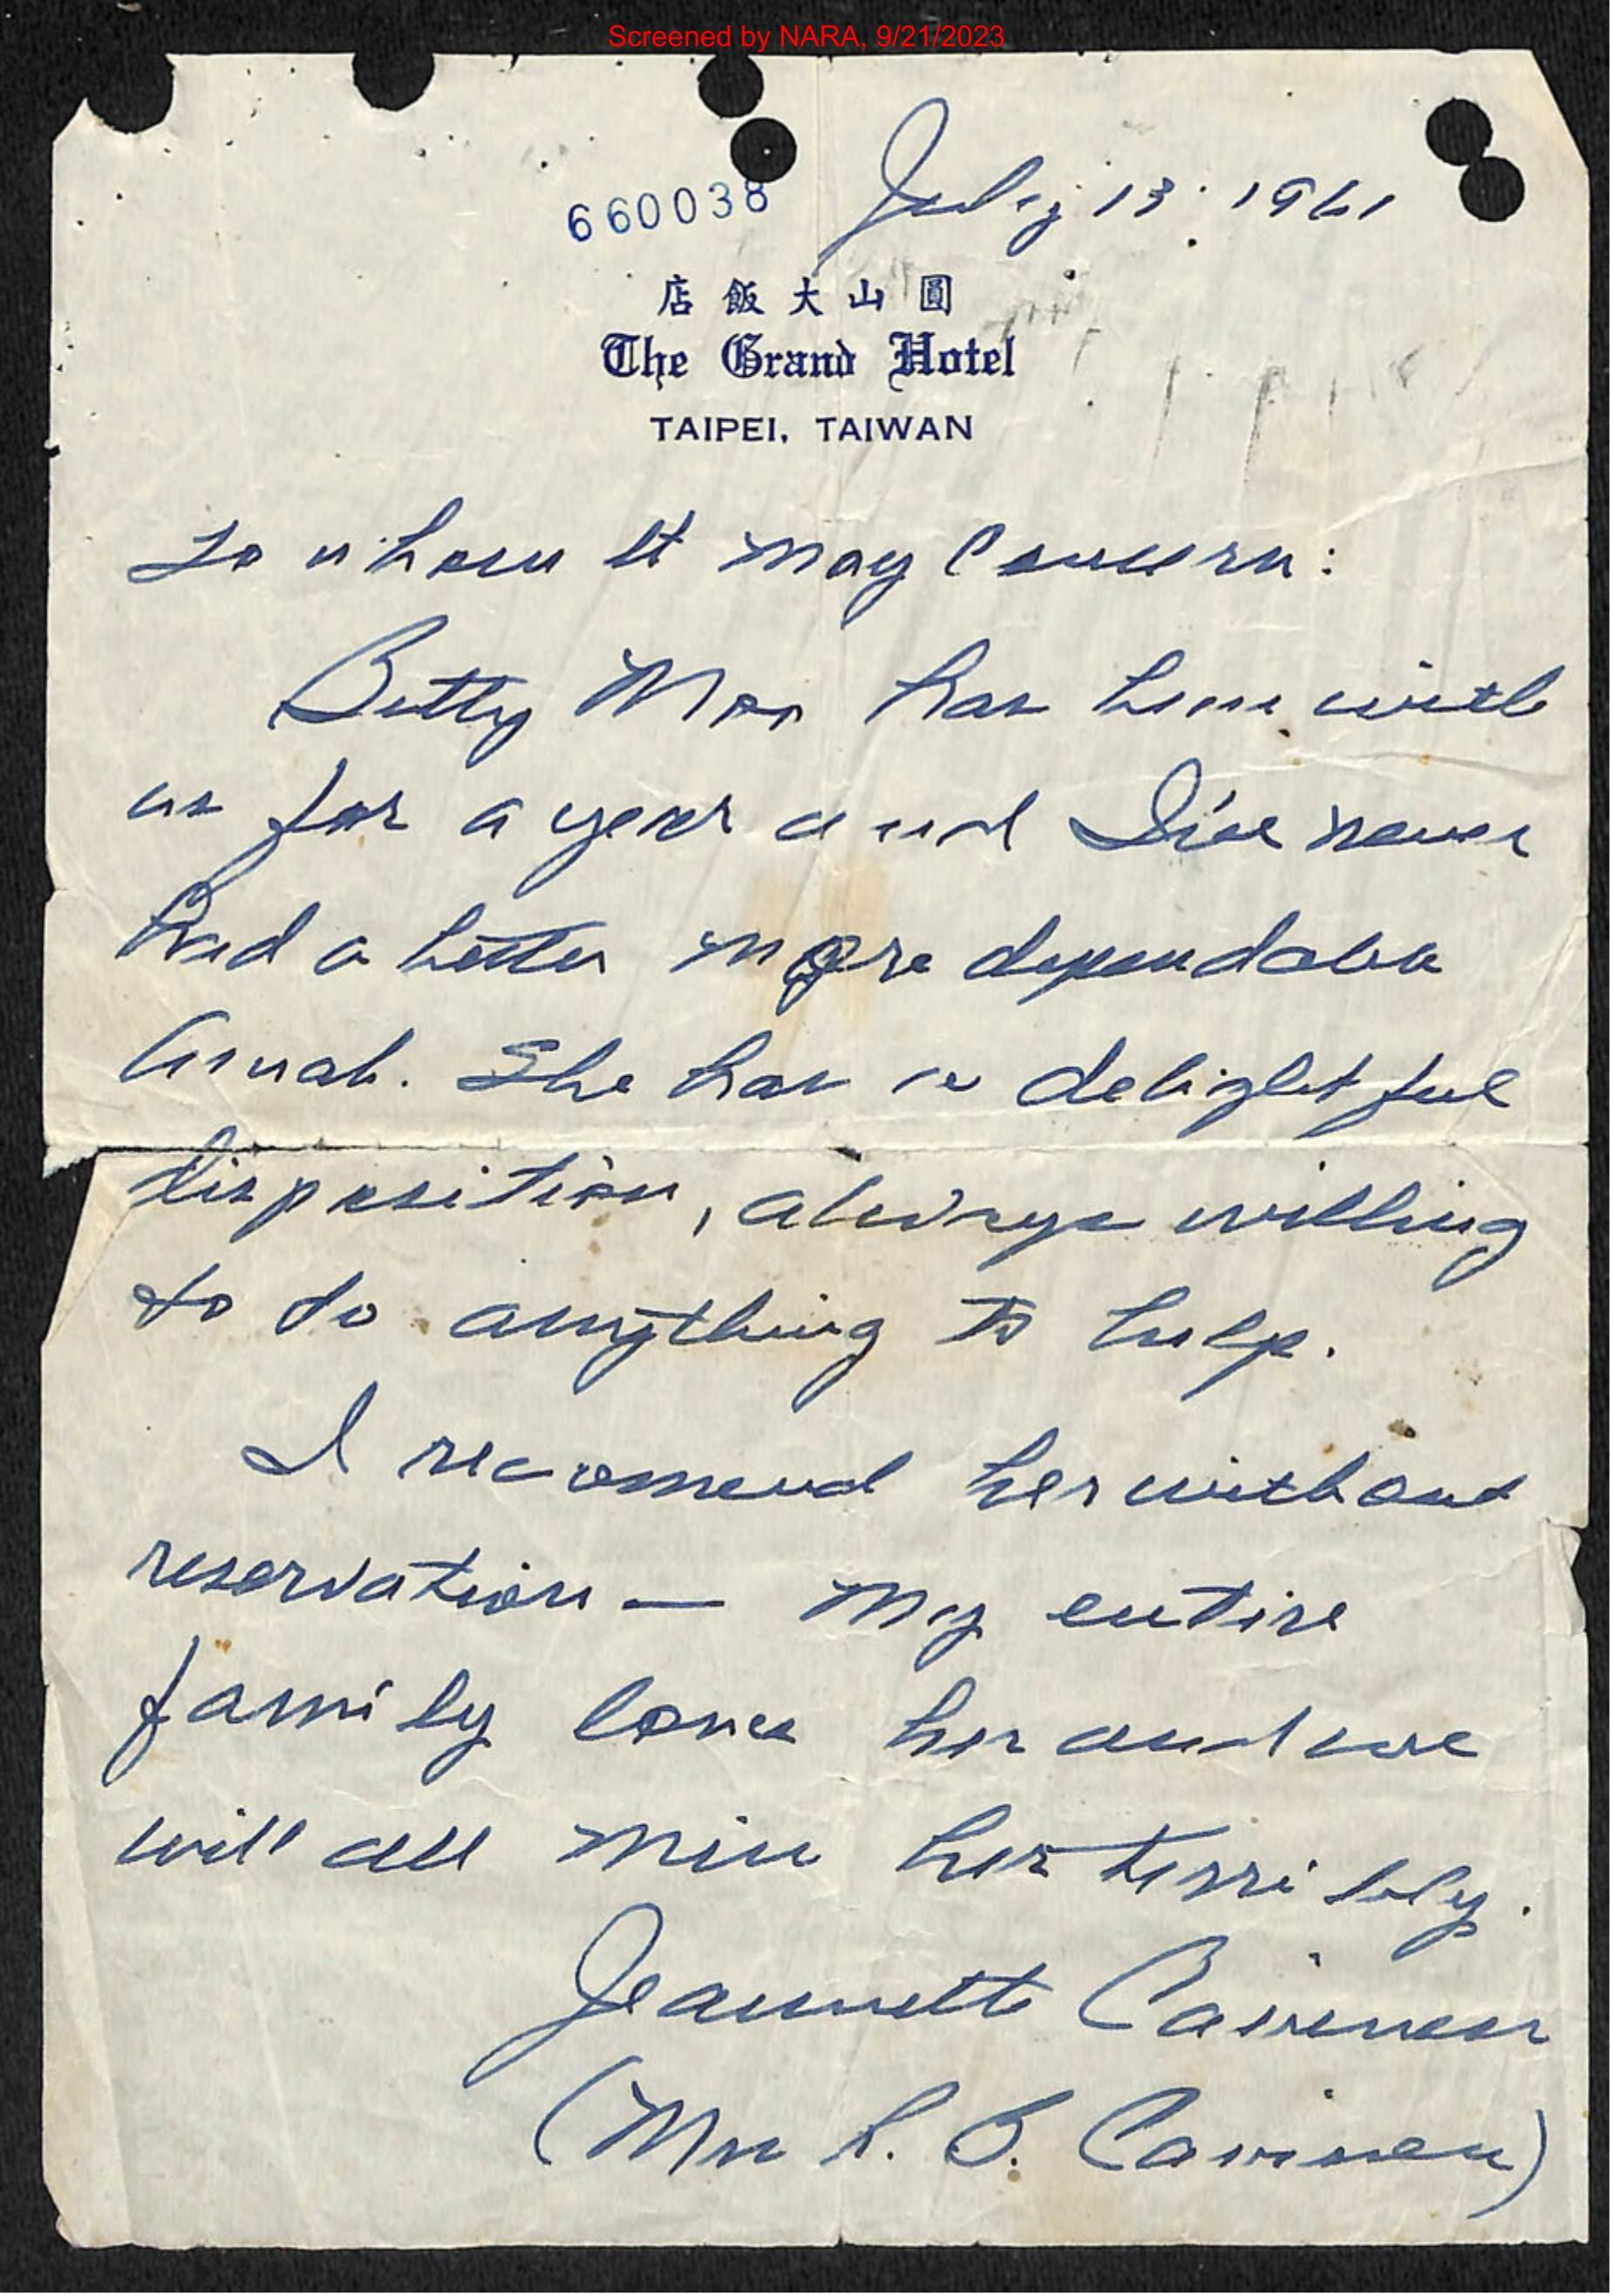 Screened by NARA, 9/21/2023
660038
July 13 1961
店飯大山圓
The Grand Hotel
TAIPEI, TAIWAN
To whom it may Concern:
Betty Moo has been with
us for a year and I've never
had a better more dependable
Amah. She has a delightful
disposition, always willing
to do anything to help.
I recomend her without
reservation — my entire
family loves her and we
will all miss her terribly.
Jeannette
(Mrs B.